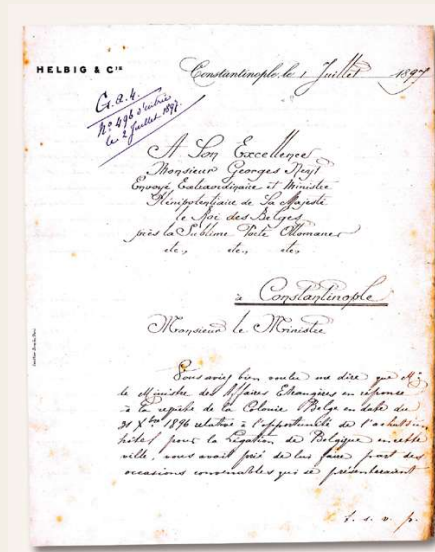 HELBIG & Cie
Constantinople, le 1 Juillet 1897
G.a.4.
No 496 d'entrée
le 2 Juillet 1897.
A Son Excellence
Monsieur Georges Neyt
Envoyé Extraordinaire et Ministre
Plénipotentiaire de Sa Majesté
le Roi des Belges
près la Sublime Porte Ottomane
etc., etc., etc,
à Constantinople
Monsieur le Ministre
Vous aviez bien voulu me dire que Mr
le Ministre des Affaires Etrangères en réponse
à la requête de la Colonie Belge en date du
31 Xbre 1896 relative à l'opportunité de l'achat d'un
hôtel pour la Légation de Belgique en cette
ville, vous avait prié de lui faire part des
occasions convenables qui se présenteraient
t. s. v. p.